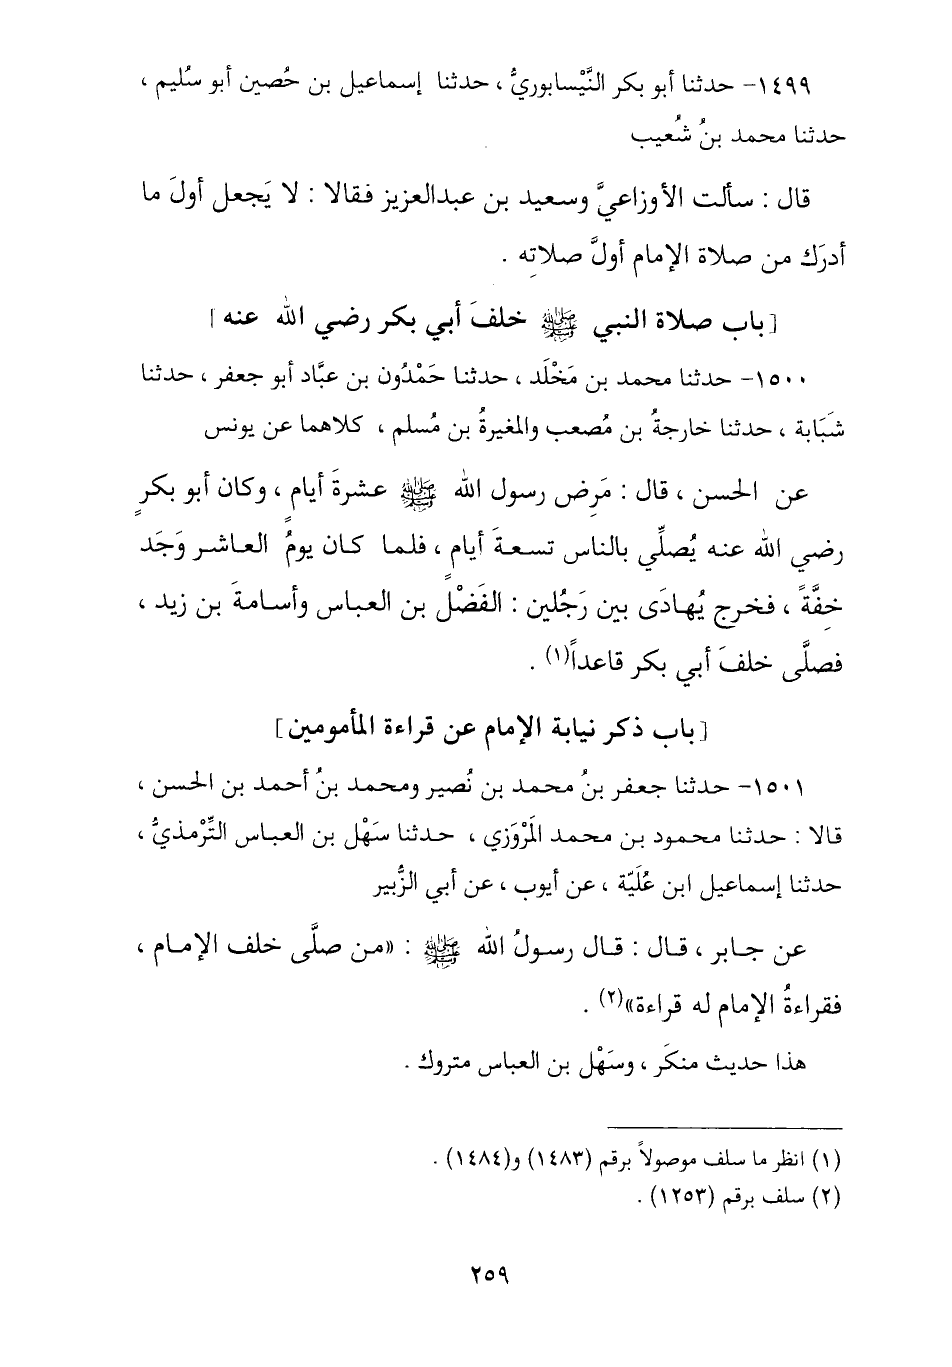 ١٤٩٩- حدثنا أبو بكر النَّيْسابوريُّ ، حدثنا إسماعيل بن حُصين أبو سُليم ،
حدثنا محمد بنُ شُعيب
قال : سألت الأوزاعيَّ وسعيد بن عبدالعزيز فقالا : لا يَجعل أولَ ما
أدرَك من صلاة الإمام أولَّ صلاتِه .
[باب صلاة النبي ﷺ خلفَ أبي بكر رضي الله عنه]
١٥٠٠- حدثنا محمد بن مَخْلَد ، حدثنا حَمْدُون بن عبَّاد أبو جعفر ، حدثنا
شَبَابة ، حدثنا خارجةُ بن مُصعب والمغيرةُ بن مُسلم ، كلاهما عن يونس
عن الحسن ، قال : مَرِض رسول الله ﷺ عشرةَ أيامٍ ، وكان أبو بكرٍ
رضي الله عنه يُصلِّي بالناس تسعةَ أيامٍ ، فلما كان يومُ العاشر وَجَد
خِفَّةً ، فخرج يُهادَى بين رَجُلين : الفَضْلِ بن العباس وأسامةَ بن زيد ،
فصلَّى خلفَ أبي بكر قاعداً(١) .
[باب ذكر نيابة الإمام عن قراءة المأمومين]
١٥٠١- حدثنا جعفر بنُ محمد بن نُصير ومحمد بنُ أحمد بن الحسن ،
قالا : حدثنا محمود بن محمد المَرْوَزي ، حدثنا سَهْل بن العباس التِّرْمذيُّ ،
حدثنا إسماعيل ابن عُلَيّة ، عن أيوب ، عن أبي الزُّبير
عن جابر ، قال : قال رسولُ الله ﷺ : «من صلَّى خلف الإمام ،
فقراءةُ الإمام له قراءة»(٢) .
هذا حديث منكَر ، وسَهْل بن العباس متروك .
(١) انظر ما سلف موصولاً برقم (١٤٨٣) و(١٤٨٤) .
(٢) سلف برقم (١٢٥٣) .
٢٥٩